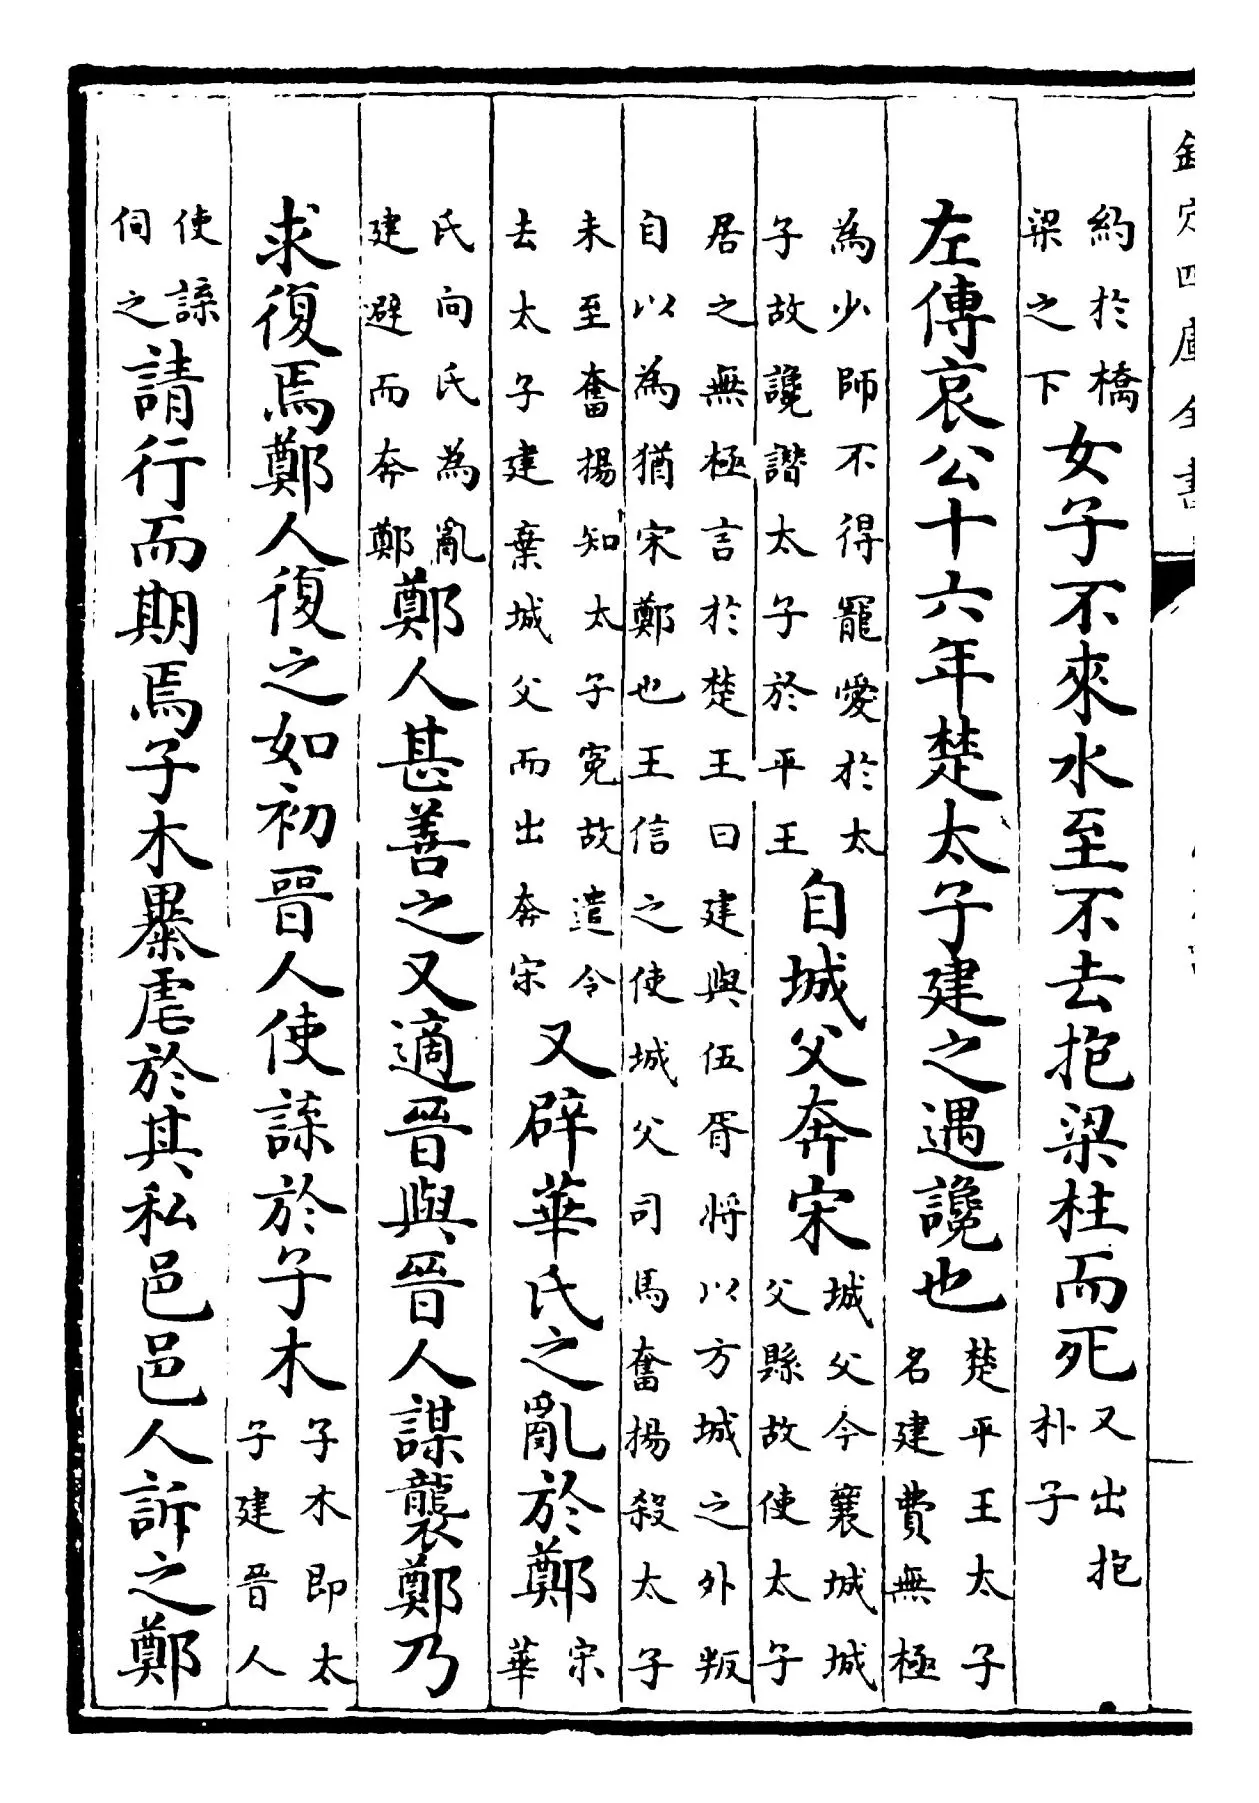 欽定四庫全書
約於橋梁之下女子不來水至不去抱梁柱而死又出抱朴子
左傳哀公十六年楚太子建之遇讒也楚平王太子名建費無極
為少師不得寵愛於太子故讒譖太子於平王自城父奔宋城父今襄城城父縣故使太子
居之無極言於楚王曰建與伍胥將以方城之外叛自以為猶宋鄭也王信之使城父司馬奮揚殺太子
未至奮揚知太子寃故遣令去太子建棄城父而出奔宋又辟華氏之亂於鄭宋華
氏向氏為亂建避而奔鄭鄭人甚善之又適晉與晉人謀襲鄭乃
求復焉鄭人復之如初晉人使諜於子木子木即太子建晉人
使諜伺之請行而期焉子木暴虐於其私邑邑人訴之鄭